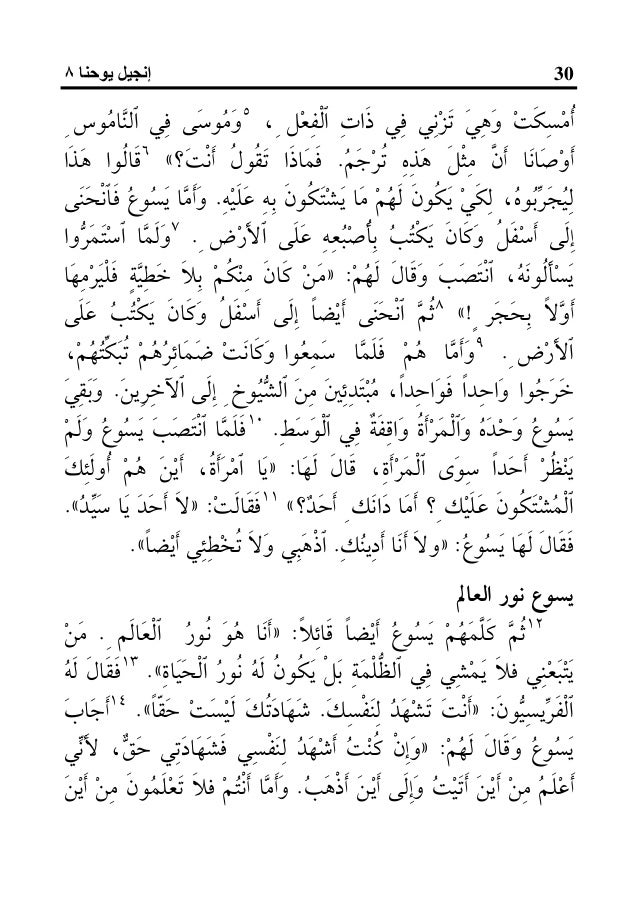 30 إنجيل يوحنا ٨
أُمْسِكَتْ وَهِيَ تَزْنِي فِي ذَاتِ ٱلْفِعْلِ، ٥وَمُوسَى فِي ٱلنَّامُوسِ
أَوْصَانَا أَنَّ مِثْلَ هٰذِهِ تُرْجَمُ. فَمَاذَا تَقُولُ أَنْتَ؟» ٦قَالُوا هٰذَا
لِيُجَرِّبُوهُ، لِكَيْ يَكُونَ لَهُمْ مَا يَشْتَكُونَ بِهِ عَلَيْهِ. وَأَمَّا يَسُوعُ فَٱنْحَنَى
إِلَى أَسْفَلُ وَكَانَ يَكْتُبُ بِأُصْبُعِهِ عَلَى ٱلأَرْضِ. ٧وَلَمَّا ٱسْتَمَرُّوا
يَسْأَلُونَهُ، ٱنْتَصَبَ وَقَالَ لَهُمْ: «مَنْ كَانَ مِنْكُمْ بِلاَ خَطِيَّةٍ فَلْيَرْمِهَا
أَوَّلاً بِحَجَرٍ!» ٨ثُمَّ ٱنْحَنَى أَيْضاً إِلَى أَسْفَلُ وَكَانَ يَكْتُبُ عَلَى
ٱلأَرْضِ. ٩وَأَمَّا هُمْ فَلَمَّا سَمِعُوا وَكَانَتْ ضَمَائِرُهُمْ تُبَكِّتُهُمْ،
خَرَجُوا وَاحِداً فَوَاحِداً، مُبْتَدِئِينَ مِنَ ٱلشُّيُوخِ إِلَى ٱلآخِرِينَ. وَبَقِيَ
يَسُوعُ وَحْدَهُ وَٱلْمَرْأَةُ وَاقِفَةٌ فِي ٱلْوَسَطِ. ١٠فَلَمَّا ٱنْتَصَبَ يَسُوعُ وَلَمْ
يَنْظُرْ أَحَداً سِوَى ٱلْمَرْأَةِ، قَالَ لَهَا: «يَا ٱمْرَأَةُ، أَيْنَ هُمْ أُولَئِكَ
ٱلْمُشْتَكُونَ عَلَيْكِ؟ أَمَا دَانَكِ أَحَدٌ؟» ١١فَقَالَتْ: «لاَ أَحَدَ يَا سَيِّدُ».
فَقَالَ لَهَا يَسُوعُ: «ولاَ أَنَا أَدِينُكِ. ٱذْهَبِي وَلاَ تُخْطِئِي أَيْضاً».
يسوع نور العالم
١٢ثُمَّ كَلَّمَهُمْ يَسُوعُ أَيْضاً قَائِلاً: «أَنَا هُوَ نُورُ ٱلْعَالَمِ. مَنْ
يَتْبَعْنِي فَلاَ يَمْشِي فِي ٱلظُّلْمَةِ بَلْ يَكُونُ لَهُ نُورُ ٱلْحَيَاةِ». ١٣فَقَالَ لَهُ
ٱلْفَرِّيسِيُّونَ: «أَنْتَ تَشْهَدُ لِنَفْسِكَ. شَهَادَتُكَ لَيْسَتْ حَقّاً». ١٤أَجَابَ
يَسُوعُ وَقَالَ لَهُمْ: «وَإِنْ كُنْتُ أَشْهَدُ لِنَفْسِي فَشَهَادَتِي حَقٌّ، لأَنِّي
أَعْلَمُ مِنْ أَيْنَ أَتَيْتُ وَإِلَى أَيْنَ أَذْهَبُ. وَأَمَّا أَنْتُمْ فَلاَ تَعْلَمُونَ مِنْ أَيْنَ